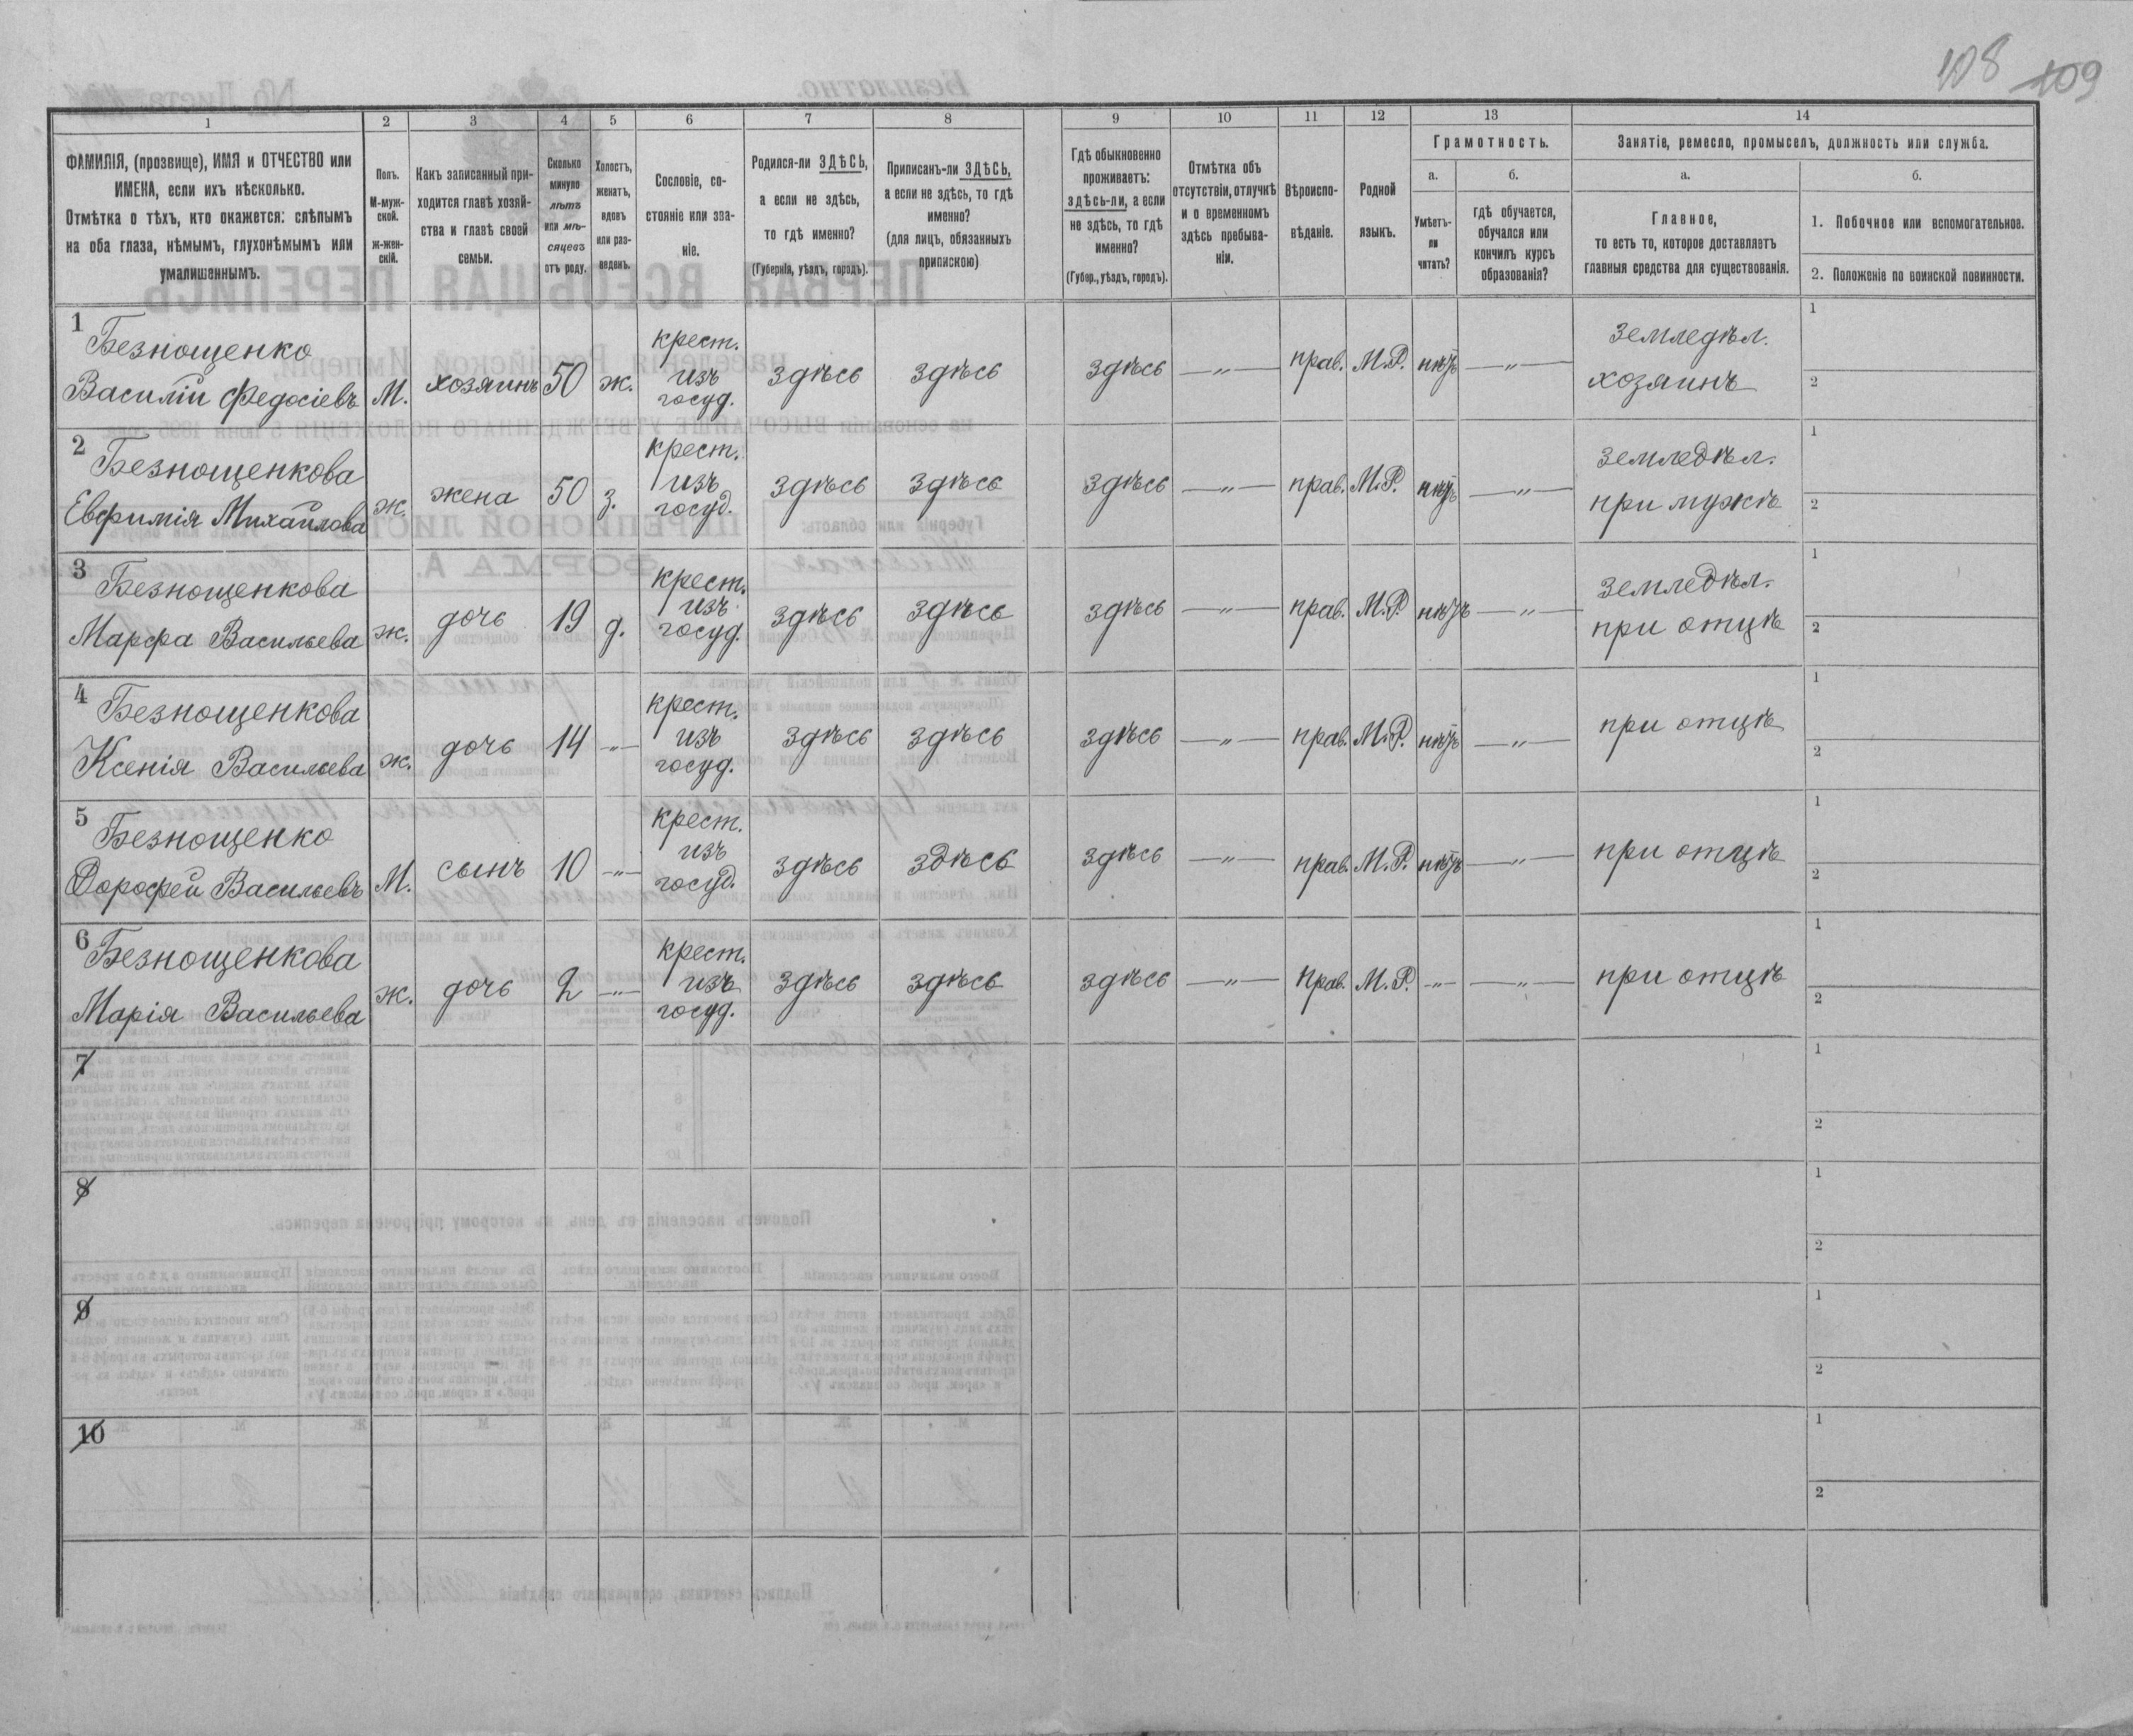 108 109
1 2 3 4 5 6 7 8 9 10 11 12 13 14
ФАМИЛІЯ, (прозвище), ИМЯ и ОТЧЕСТВО или
ИМЕНА, если ихъ нѣсколько.
Отмѣтка о тѣхъ, кто окажется: слѣпымъ
на оба глаза, нѣмымъ, глухонѣмымъ или
умалишеннымъ.
Полъ.
М-муж-
ской.
Ж-жен-
скій.
Какъ записанный при-
ходится главѣ хозяй-
ства и главѣ своей
семьи.
Сколько
минуло
лѣтъ
или мѣ-
сяцевъ
отъ роду.
Холостъ,
женатъ,
вдовъ
или раз-
веденъ.
Сословіе, со-
стояніе или зва-
ніе.
Родился-ли ЗДѢСЬ,
а если не здѣсь,
то гдѣ именно?
(Губернія, уѣздъ, городъ).
Приписанъ-ли ЗДѢСЬ,
а если не здѣсь, то гдѣ
именно?
(для лицъ, обязанныхъ
припискою)
Гдѣ обыкновенно
проживаетъ:
здѣсь-ли, а если
не здѣсь, то гдѣ
именно?
(Губер., уѣздъ, городъ).
Отмѣтка объ
отсутствіи, отлучкѣ
и о временномъ
здѣсь пребыва-
ніи.
Вѣроиспо-
вѣданіе.
Родной
языкъ.
Грамотность.
а.
Умѣетъ-
ли
читать?
б.
гдѣ обучается,
обучался или
кончилъ курсъ
образованія?
Занятіе, ремесло, промыселъ, должность или служба.
а.
Главное,
то есть то, которое доставляетъ
главныя средства для существованія.
б.
1. Побочное или вспомогательное.
2. Положеніе по воинской повинности.
1 Безнощенко
Василій Федосіевъ М. хозяинъ 50 ж. крест. изъ госуд. здѣсь здѣсь здѣсь —„— прав. М.Р. нѣтъ —„— земледѣл. хозяинъ 1 2
2 Безнощенкова
Евфимія Михайлова ж. жена 50 з. крест. изъ госуд. здѣсь здѣсь здѣсь —„— прав. М.Р. нѣтъ —„— земледѣл. при мужѣ 1 2
3 Безнощенкова
Марфа Васильева ж. дочь 19 д. крест. изъ госуд. здѣсь здѣсь здѣсь —„— прав. М.Р. нѣтъ —„— земледѣл. при отцѣ 1 2
4 Безнощенкова
Ксенія Васильева ж. дочь 14 -„- крест. изъ госуд. здѣсь здѣсь здѣсь —„— прав. М.Р. нѣтъ —„— при отцѣ 1 2
5 Безнощенко
Дорофей Васильевъ М. сынъ 10 -„- крест. изъ госуд. здѣсь здѣсь здѣсь —„— прав. М.Р. нѣтъ —„— при отцѣ 1 2
6 Безнощенкова
Марія Васильева ж. дочь 2 -„- крест. изъ госуд. здѣсь здѣсь здѣсь —„— прав. М.Р. -„- —„— при отцѣ 1 2
7 1 2
8 1 2
9 1 2
10 1 2